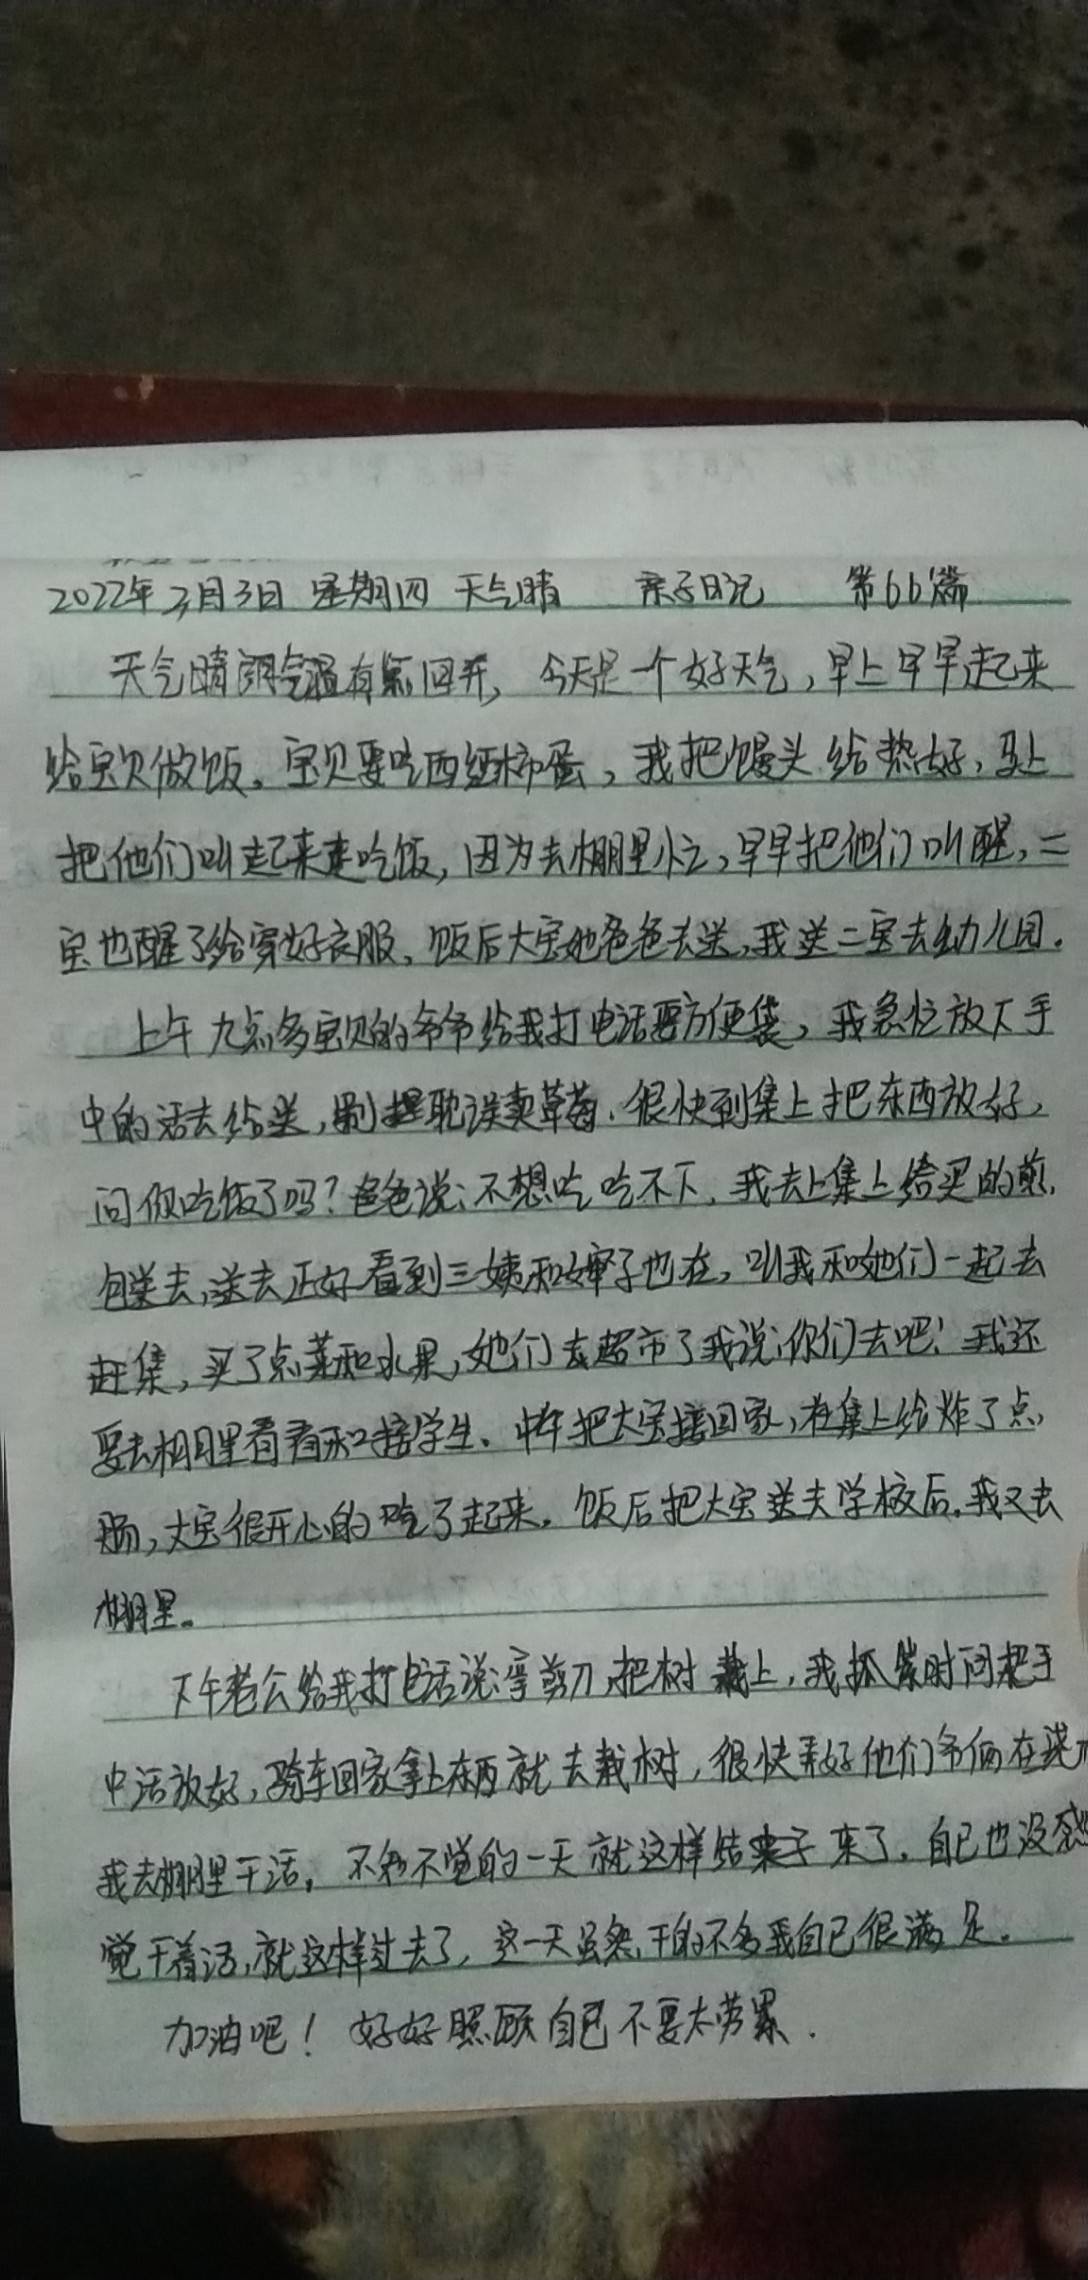 2022年3月3日 星期四 天气晴 亲子日记 第66篇
天气晴朗气温有点回升，今天是一个好天气，早上早早起来
给宝贝做饭。宝贝要吃西红柿蛋，我把馒头给热好，马上
把他们叫起来走吃饭，因为去棚里忙，早早把他们叫醒，二
宝也醒了给穿好衣服。饭后大宝她爸爸去送，我送二宝去幼儿园。
上午九点多宝贝的爷爷给我打电话要方便袋，我急忙放下手
中的活去给送，别耽误卖草莓．很快到集上把东西放好，
问你吃饭了吗？爸爸说：不想吃吃不下．我去上集上给买的煎
包送去，送去正好看到三姨和婶子也在，叫我和她们一起去
赶集，买了点菜和水果，她们去超市了我说：你们去吧！我还
要去棚里看看和接学生．中午把大宝接回家，在集上给炸了点
肠，大宝很开心的吃了起来．饭后把大宝送去学校后．我又去
棚里。
下午老公给我打电话说：拿剪刀把树栽上，我抓紧时间把手
中活放好，骑车回家拿上东西就去栽树，很快弄好他们爷俩在浇
我去棚里干活．不知不觉的一天就这样结束了．自己也没感
觉干着活，就这样过去了，这一天虽然干的不多我自己很满足．
加油吧！好好照顾自己不要太劳累．